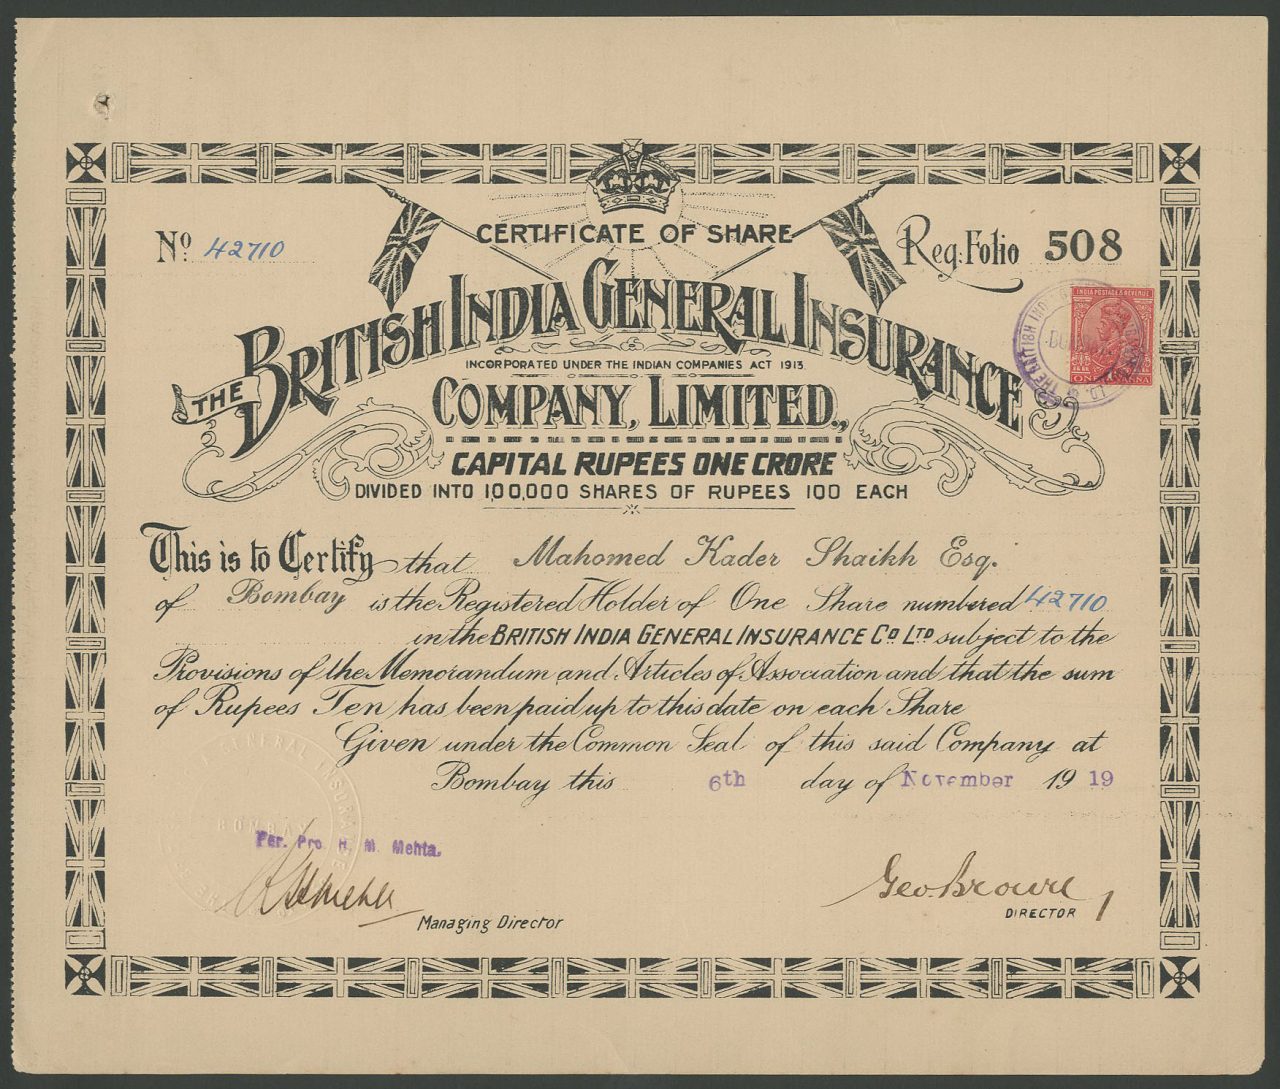 CERTIFICATE OF SHARE
No. 42710
Reg: Folio 508
INDIA POSTAGE & REVENUE
ONE ANNA
THE BRITISH INDIA GENERAL INSURANCE
INCORPORATED UNDER THE INDIAN COMPANIES ACT 1913.
COMPANY, LIMITED.,
CAPITAL RUPEES ONE CRORE
DIVIDED INTO 1,00,000 SHARES OF RUPEES 100 EACH
This is to Certify that Mahomed Kader Shaikh Esq.
of Bombay is the Registered Holder of One Share numbered 42710
in the BRITISH INDIA GENERAL INSURANCE Co. LTD subject to the
Provisions of the Memorandum and Articles of Association and that the sum
of Rupees Ten has been paid up to this date on each Share
Given under the Common Seal of this said Company at
Bombay this 6th day of November 1919
GENERAL INSURANCE
BOMBAY
Per. Pro H. M. Mehta.
Managing Director
Geo. Browne
DIRECTOR